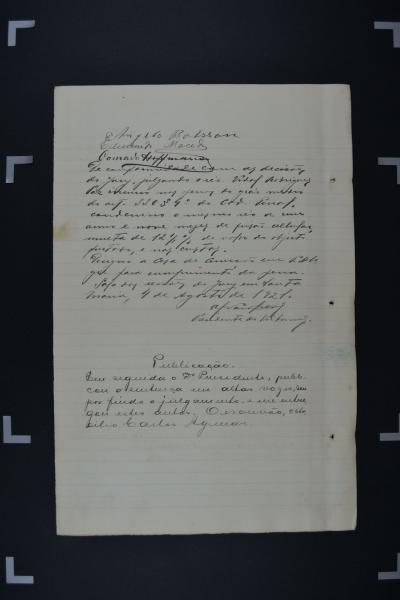 Angelo Robsson
Eduardo Macedo
Conrado Hoffmann
De conformidade com as decisões
do jury, julgando o réo Vidal Rodrigues
incurso nas penas do gráo
do art. 330 § 4º do Cod. Penal,
condemno o mesmo réo a um
anno e nove mezes de prisão cellular,
multa de 12 ½ % do valor do objecto
furtado, e nas custas.
Designo a Casa de Correcção em
para cumprimento da pena.
Sala das sessões do Jury em Santa
Maria, 4 de Agosto de 1921.
Presidente do
Publicação.
Em seguida o Dr Presidente, publi-
cou a sentença em altas vozes, deu
por findo o julgamento e me entre-
gou estes autos. O escrivão,
Carlos Aguiar.